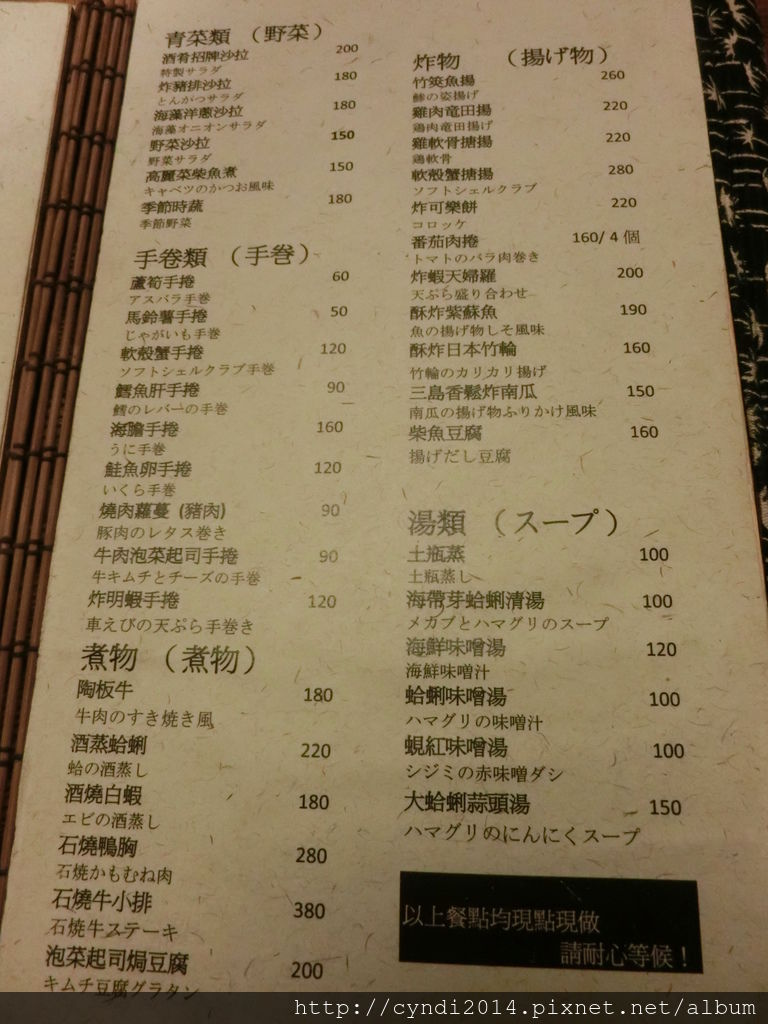 青菜類 （野菜）
酒肴招牌沙拉 200
特製サラダ
炸豬排沙拉 180
とんがつサラダ
海藻洋蔥沙拉 180
海藻オニオンサラダ
野菜沙拉 150
野菜サラダ
高麗菜柴魚煮 150
キャベツのかつお風味
季節時蔬 180
季節野菜
手卷類 （手巻）
蘆筍手捲 60
アスパラ手巻
馬鈴薯手捲 50
じゃがいも手巻
軟殼蟹手捲 120
ソフトシェルクラブ手巻
鱈魚肝手捲 90
鱈のレバーの手巻
海膽手捲 160
うに手巻
鮭魚卵手捲 120
いくら手巻
燒肉蘿蔓 (豬肉) 90
豚肉のレタス巻き
牛肉泡菜起司手捲 90
牛キムチとチーズの手巻
炸明蝦手捲 120
車えびの天ぷら手巻き
煮物 （煮物）
陶板牛 180
牛肉のすき焼き風
酒蒸蛤蜊 220
蛤の酒蒸し
酒燒白蝦 180
エビの酒蒸し
石燒鴨胸 280
石焼かもむね肉
石燒牛小排 380
石焼牛ステーキ
泡菜起司焗豆腐 200
キムチ豆腐グラタン
炸物 （揚げ物）
竹筴魚揚 260
鯵の姿揚げ
雞肉竜田揚 220
鶏肉竜田揚げ
雞軟骨搪揚 220
鶏軟骨
軟殼蟹搪揚 280
ソフトシェルクラブ
炸可樂餅 220
コロッケ
番茄肉捲 160/ 4 個
トマトのバラ肉巻き
炸蝦天婦羅 200
天ぷら盛り合わせ
酥炸紫蘇魚 190
魚の揚げ物しそ風味
酥炸日本竹輪 160
竹輪のカリカリ揚げ
三島香鬆炸南瓜 150
南瓜の揚げ物ふりかけ風味
柴魚豆腐 160
揚げだし豆腐
湯類 （スープ）
土瓶蒸 100
土瓶蒸し
海帶芽蛤蜊清湯 100
メガブとハマグリのスープ
海鮮味噌湯 120
海鮮味噌汁
蛤蜊味噌湯 100
ハマグリの味噌汁
蜆紅味噌湯 100
シジミの赤味噌ダシ
大蛤蜊蒜頭湯 150
ハマグリのにんにくスープ
以上餐點均現點現做
請耐心等候！
http://cyndi2014.pixnet.net/album